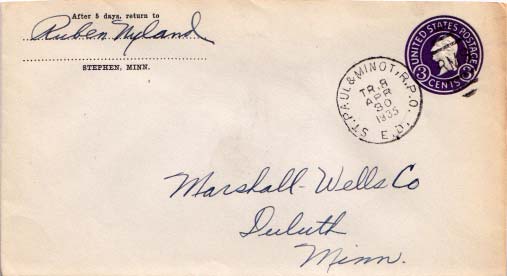 After 5 days, return to
Ruben Nyland
STEPHEN, MINN.
UNITED STATES POSTAGE
3 CENTS 3
ST. PAUL & MINOT, R.P.O.
TR. 8
APR
30
1935
E.D.
Marshall-Wells Co
Duluth
Minn.